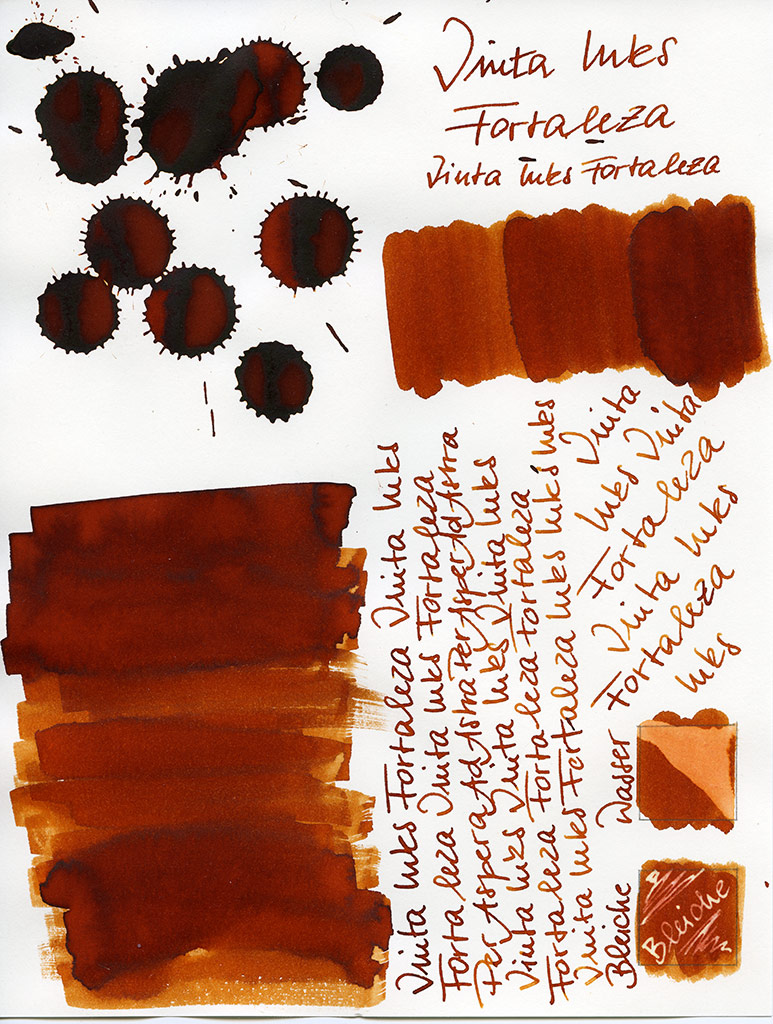 Vinta Inks
Fortaleza
Vinta Inks Fortaleza
Vinta Inks Fortaleza Vinta Inks
Fortaleza Vinta Inks Fortaleza
Per Aspera Ad Astra Per Asper Ad Astra
Vinta Inks Vinta Inks Vinta Inks
Fortaleza Fortaleza Fortaleza
Vinta Inks Fortaleza Inks Inks Inks
Vinta
Inks Vinta
Fortaleza
Vinta Inks
Fortaleza
Inks
Wasser
Bleiche
Bleiche